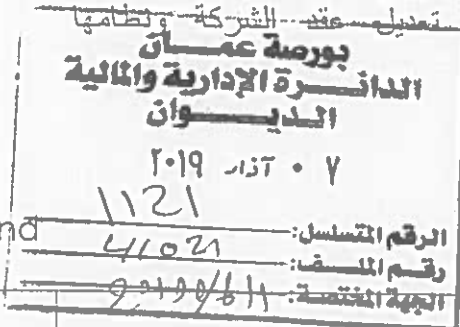 تعديل عقد الشركة ونظامها
بورصة عمان
الدائرة الإدارية والمالية
الديوان
٠٧ آذار ٢٠١٩
الرقم المتسلسل: 1121
nd
رقم الملف: 41021
الجهة المختصة: